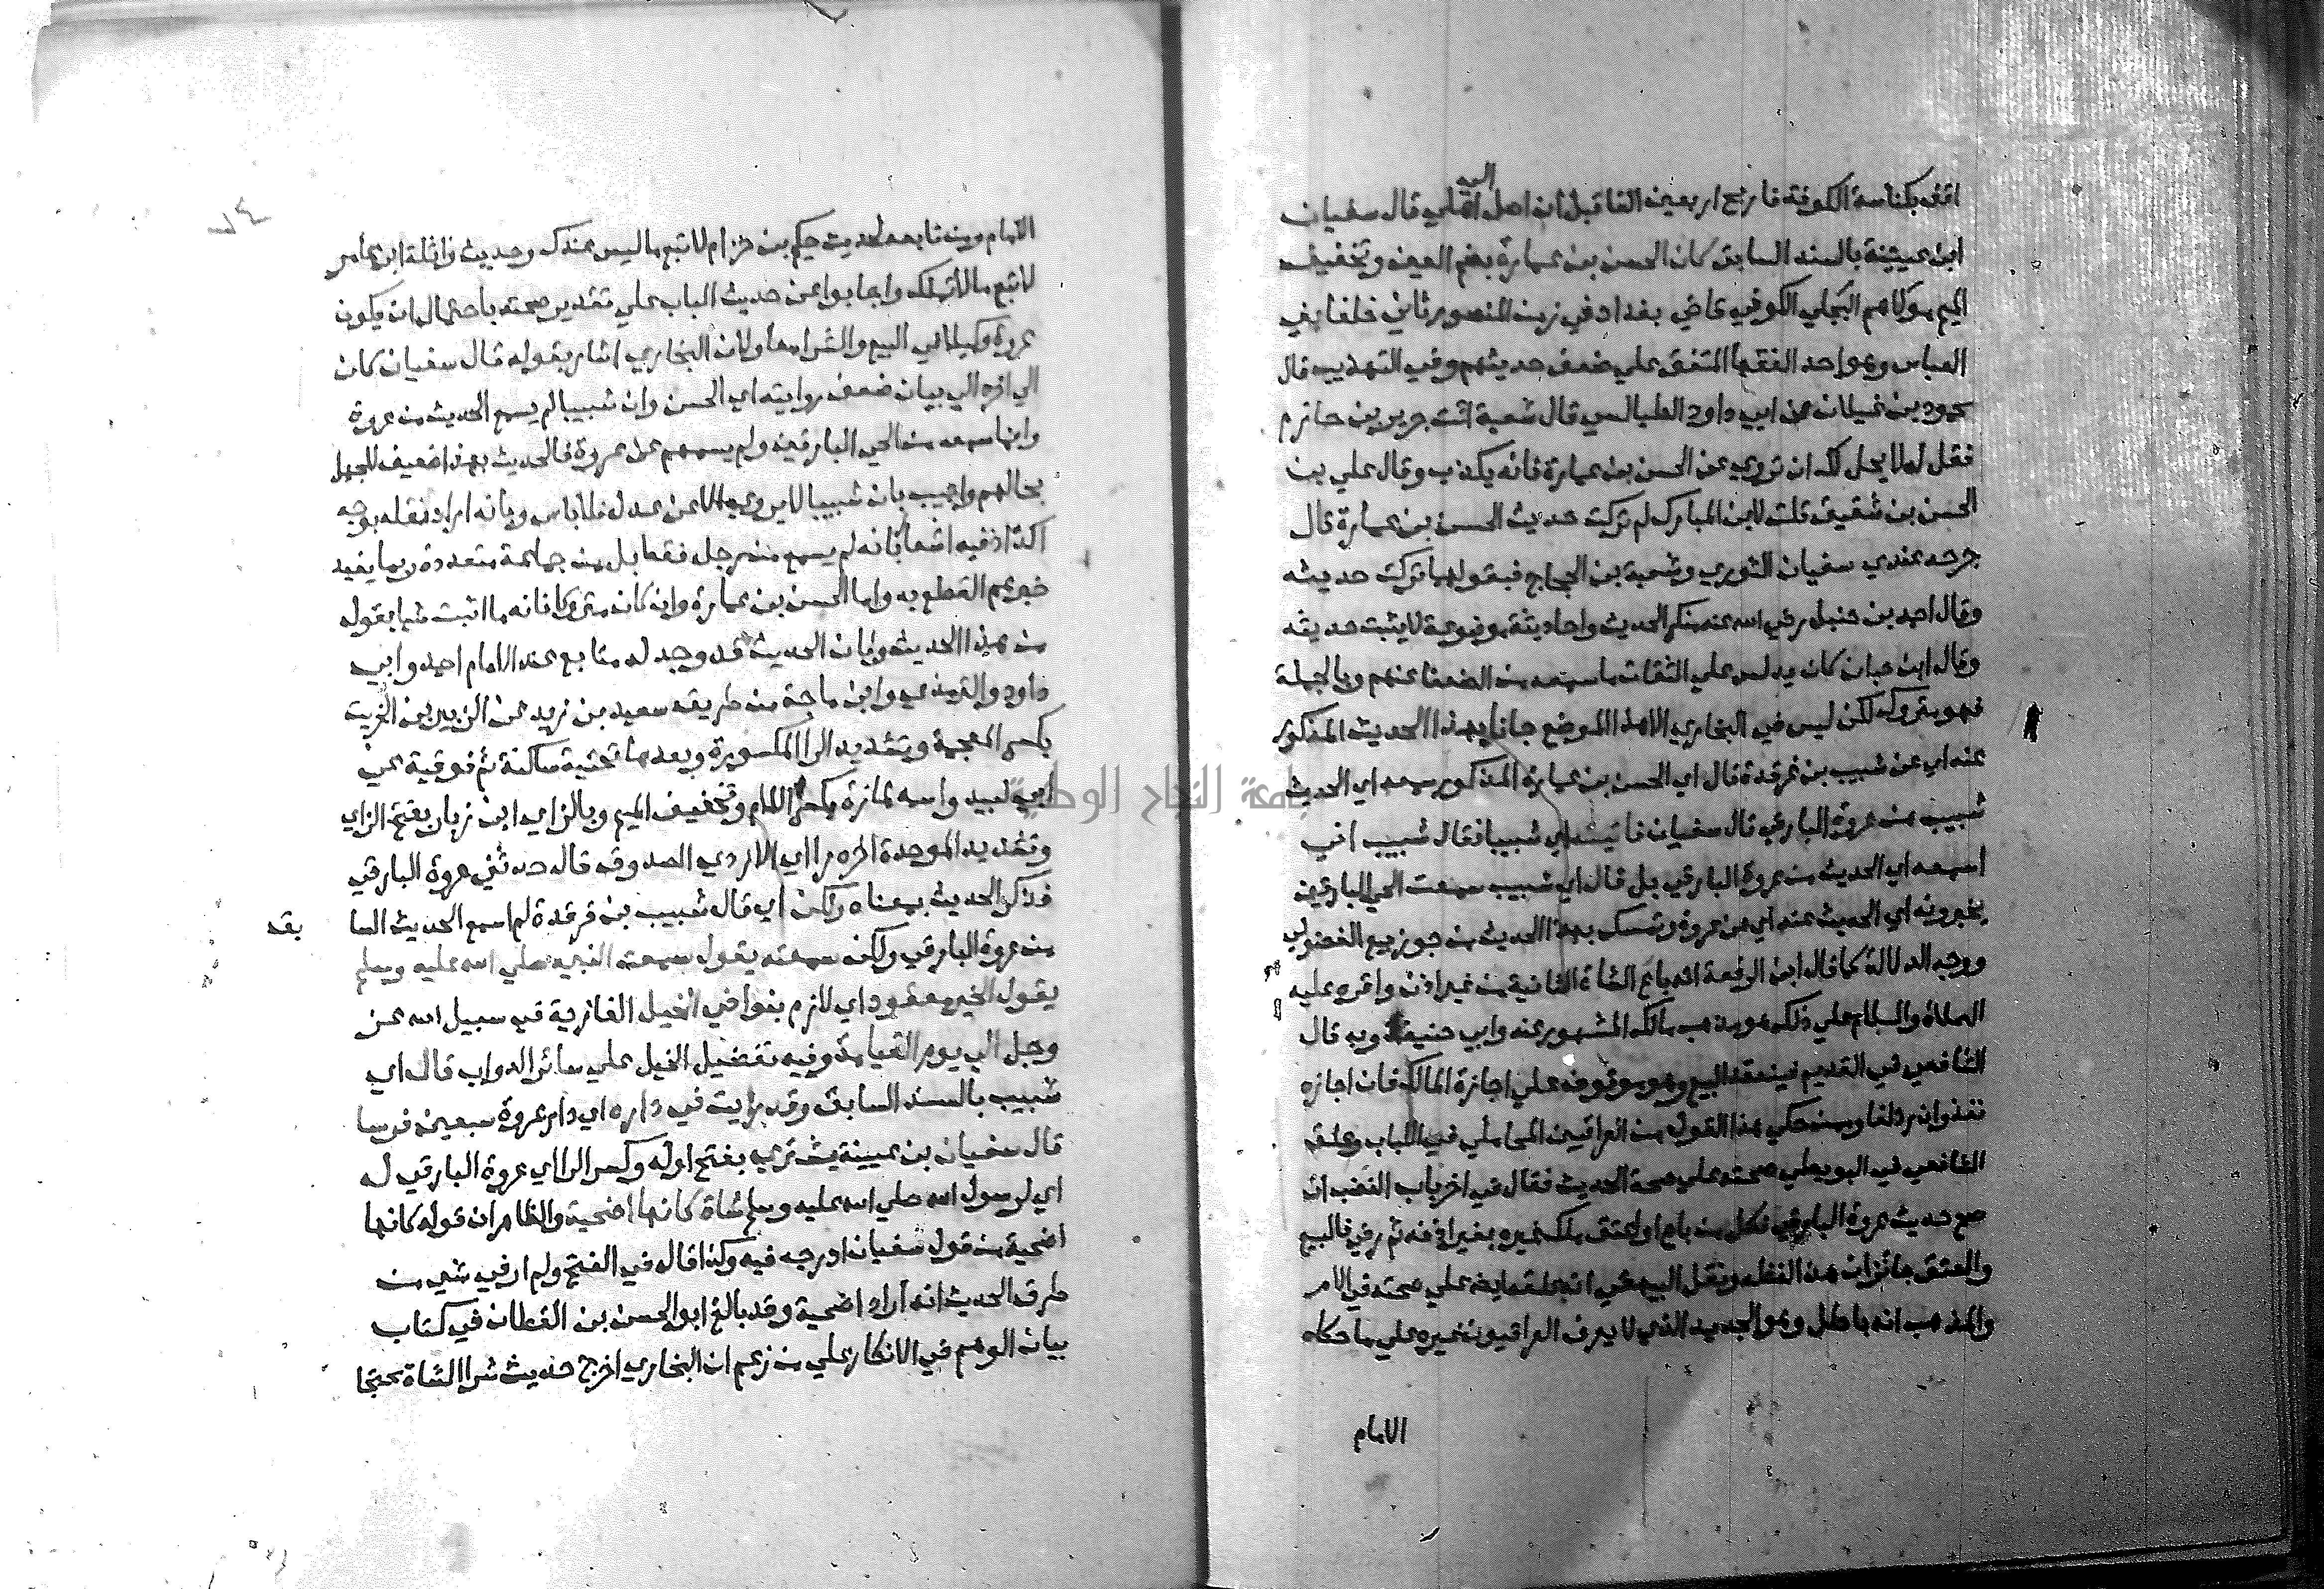 اقف بكناسة الكوفة فاربح اربعين الفا قبل ان اصل الي اهلي قال سفيان
ابن عيينة بالسند السابق كان الحسن بن عمارة بضم العين وتخفيف
الميم مولاهم البجلي الكوفي قاضي بغداد في زمن المنصور ثاني خلفا بني
العباس وهو احد الفقها المتفق علي ضعف حديثهم وفي التهذيب قال
محمود بن غيلان عن ابي داود الطيالسي قال شعبة ائت جرير بن حازم
فقل له لا يحل لك ان تروي عن الحسن بن عمارة فانه يكذب وقال علي بن
الحسن بن شقيق قلت لابن المبارك لم تركت حديث الحسن بن عمارة قال
جرحه عندي سفيان الثوري وشعبة بن الحجاج فبقولهما تركت حديثه
وقال احمد بن حنبل رضي الله عنه منكر الحديث واحاديثه موضوعة لا يثبت حديثه
وقال ابن حبان كان يدلس علي الثقات ما سمعه من الضعفا عنهم وبالجملة
فهو متروك لكن ليس في البخاري الا هذا الموضع جانا بهذا الحديث المذكور
عنه اي عن شبيب بن غرقدة قال اي الحسن بن عمارة المذكور سمعه اي الحديث
شبيب من عروة البارقي قال سفيان فاتيته اي شبيبا فقال شبيب اني
اسمعه اي الحديث من عروة البارقي بل قال اي شبيب سمعت الحي البارقين
يخبرونه اي الحديث عنه اي عن عروة وتمسك بهذا الحديث من جوز بيع الفضولي
ووجه الدلالة كما قال ابن الرفعة انه باع الشاة الثانية من غير اذن واقره عليه
الصلاة والسلام علي ذلك هو مذهب مالك المشهور عنه وابي حنيفة وبه قال
الشافعي في القديم فينعقد البيع وهو موقوف علي اجازة المالك فان اجازه
نفذ وان رد لغا وممن حكي هذا القول من العراقيين المحاملي في اللباب وعلق
الشافعي في البويطي صحته علي صحة الحديث فقال في اخر باب الغصب ان
صح حديث عروة البارقي فكل من باع او اعتق ملك غيره بغير اذنه ثم رضي فالبيع
والعتق جائزان هذا لفظه ونقل البيهقي انه علقه ايضا علي صحته في الام
والمذهب انه باطل وهو الجديد الذي لا يعرف العراقيون غيره علي ما حكاه
الامام
الامام ومن تابعه لحديث حكيم بن حزام لا تبع ما ليس عندك وحديث واثلة ابن عامر
لا تبع ما لا تملك واجابوا عن حديث الباب علي تقدير صحته باحتمال ان يكون
عروة وكيلا في البيع والشرا معا ولان البخاري اشار بقوله قال سفيان كان
الي اخره الي بيان ضعف روايته اي الحسن وان شبيبا لم يسمع الحديث من عروة
وانما سمعه من الحي البارقين ولم يسمهم عن عروة فالحديث بهذا ضعيف للجهل
بحالهم واجيب بان شبيبا لا يروي الا عن عدل فلا باس وبانه اراد نقله بوجه
اكد اذ فيه اشعار بانه لم يسمع من رجل فقط بل من جماعة متعددة ربما يفيد
خبرهم القطع به واما الحسن بن عمارة وان كان متروكا فانه ما اثبت شيا بقوله
من هذا الحديث وبان الحديث قد وجد له متابع عند الامام احمد وابي
داود والترمذي وابن ماجة من طريق سعيد بن زيد عن الزبير بن الخريت
بكسر المعجمة وتشديد الرا المكسورة وبعدها تحتية ساكنة ثم فوقية عن
ابي لبيد واسمه لمازة بكسر اللام وتخفيف الميم وبالزاي ابن زبار بفتح الزاي
وتشديد الموحدة اخره را اي الازدي الصدوق قال حدثني عروة البارقي
فذكر الحديث بمعناه ولكن اي قال شبيب بن غرقدة لم اسمع الحديث السا بقه
من عروة البارقي ولكن سمعته يقول سمعت النبي صلي الله عليه وسلم
يقول الخير معقود اي لازم بنواصي الخيل الغازية في سبيل الله عز
وجل الي يوم القيامة وفيه تفضيل الخيل علي سائر الدواب قال اي
شبيب بالسند السابق وقد رايت في داره اي دار عروة سبعين فرسا
قال سفيان بن عيينة يشتري بفتح اوله وكسر الرا اي عروة البارقي له
اي لرسول الله صلي الله عليه وسلم شاة كانها اضحية والظاهر ان قوله كانها
اضحية من قول سفيان ادرجه فيه وكذا قال في الفتح ولم ار في شي من
طرق الحديث انه اراد اضحية وقد بالغ ابو الحسن بن القطان في كتاب
بيان الوهم في الانكار علي من زعم ان البخاري اخرج حديث شرا الشاة محتجا
جامعة النجاح الوطنية